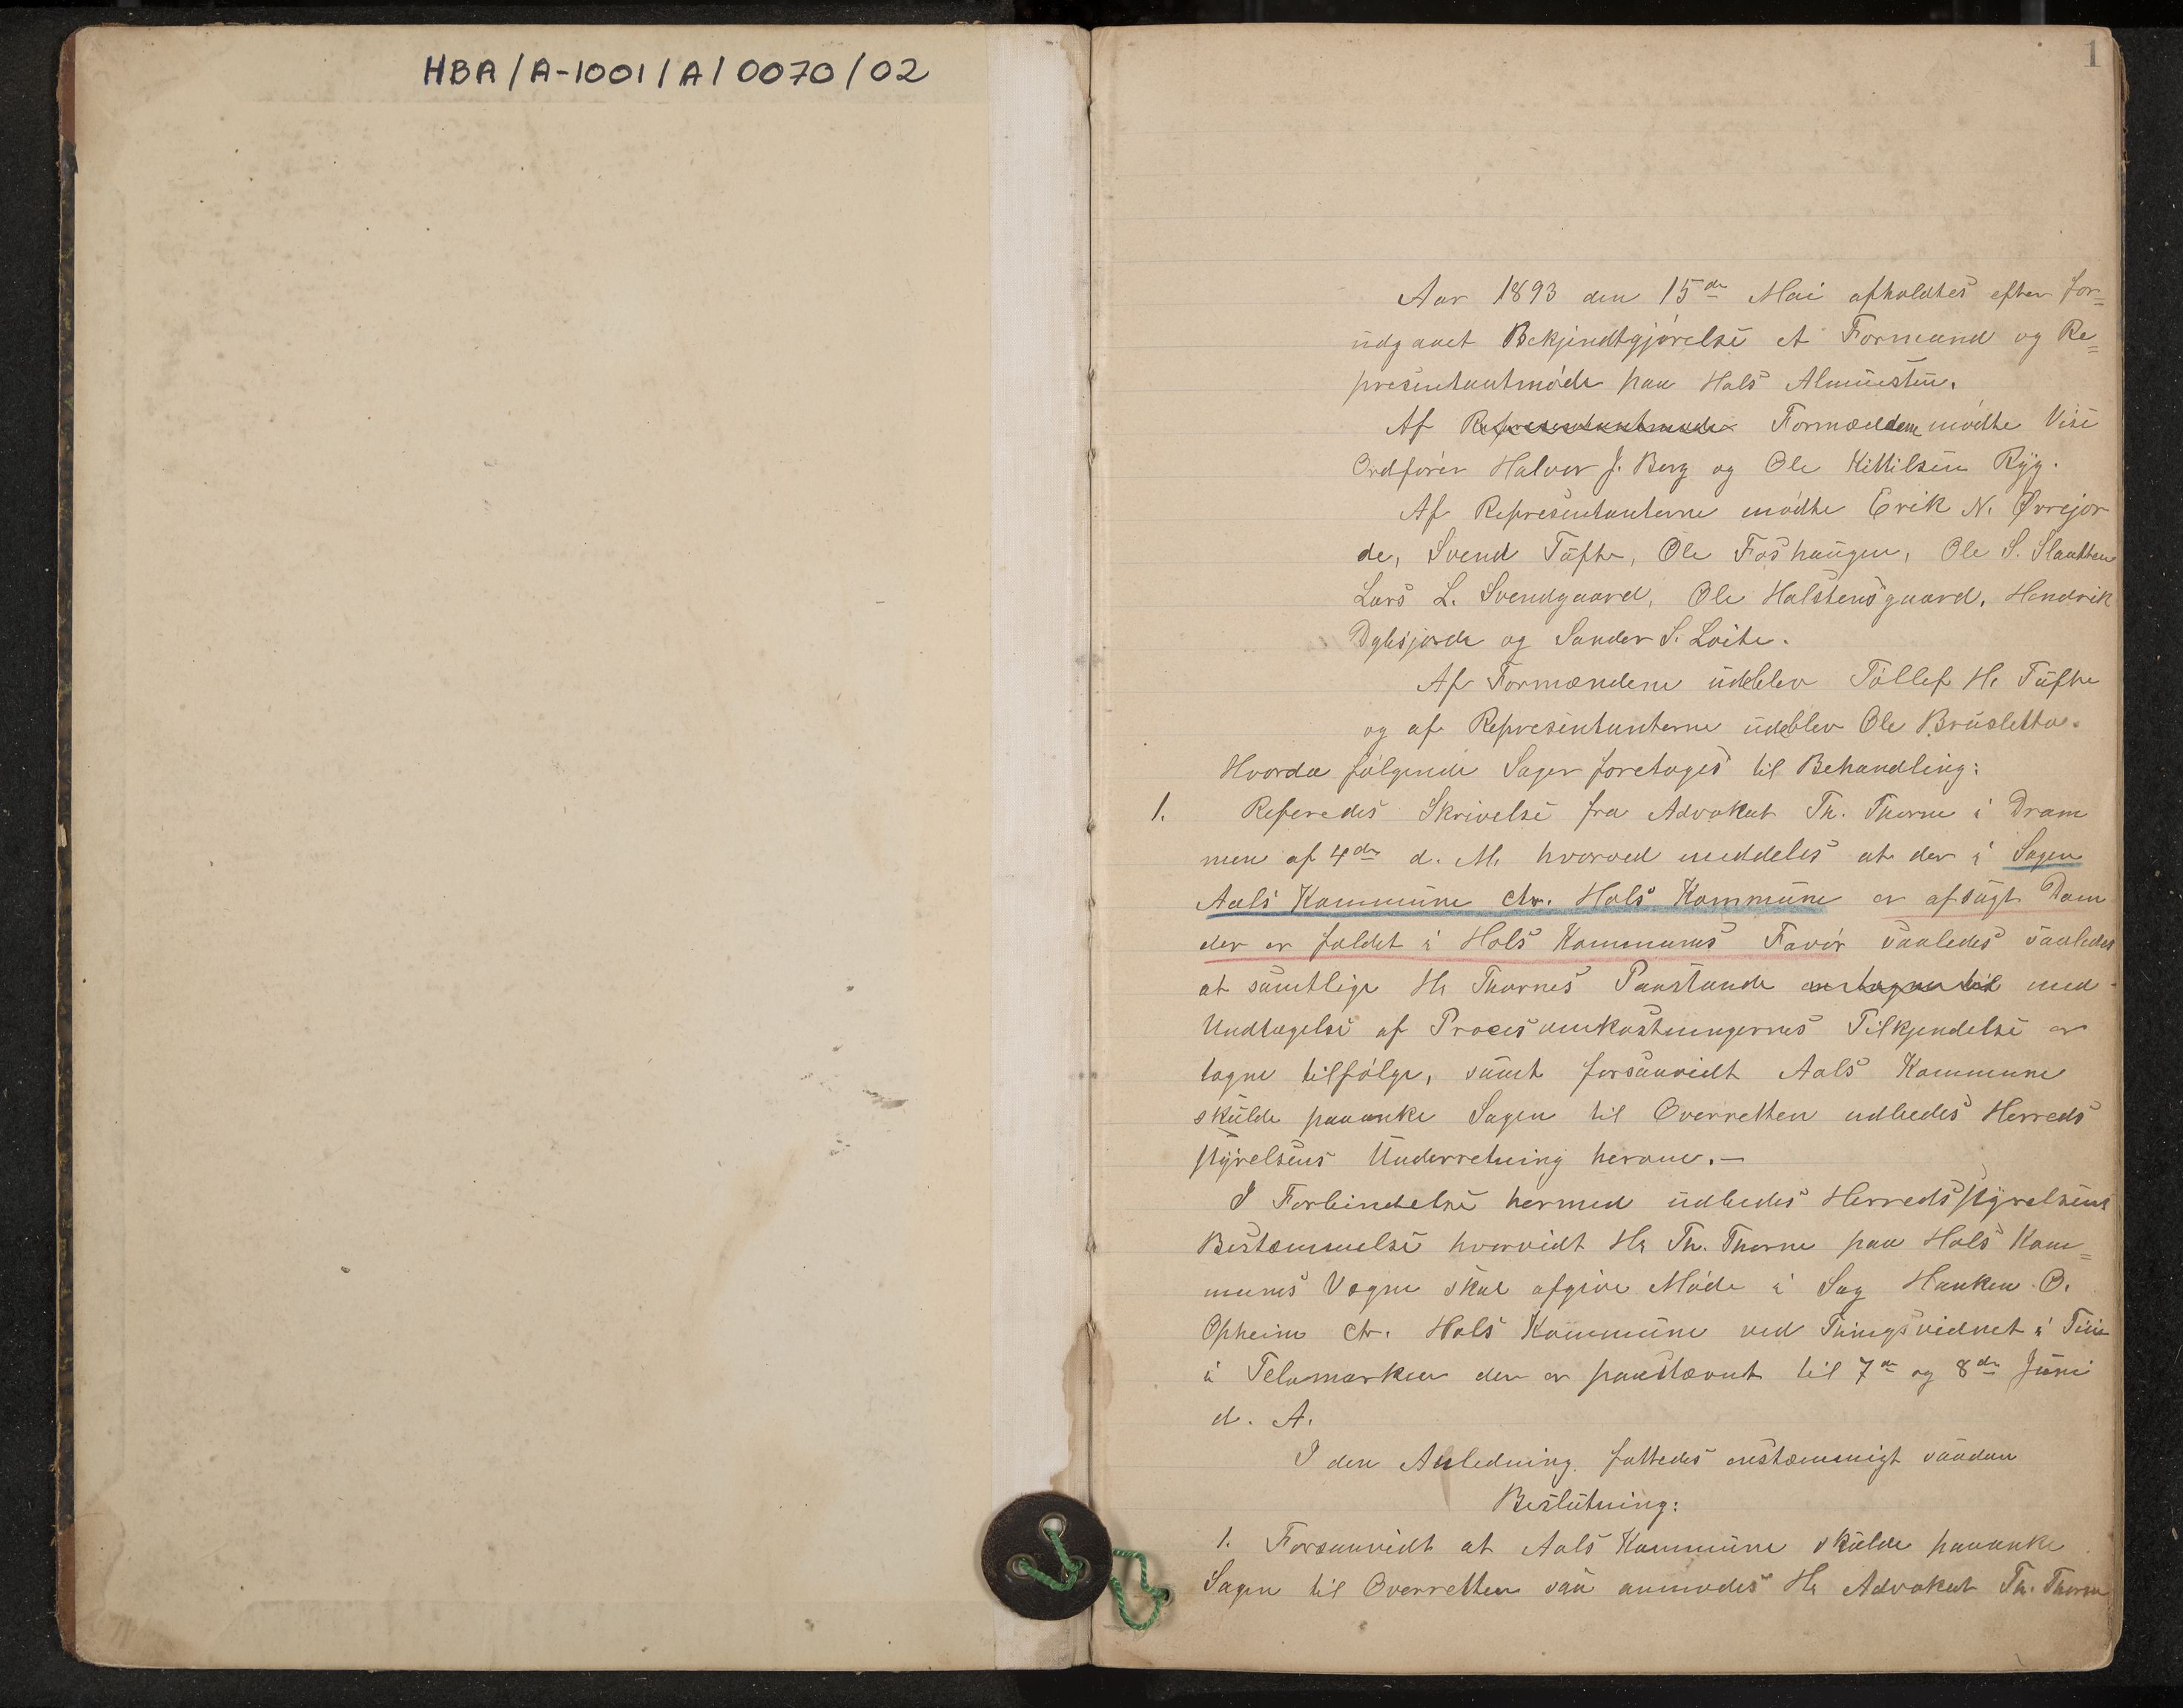 HBA/A-1001/A/0070/02
1
Aar 1893 den 15de Mai afholdtes efter for=
udgaaet Bekjendtgjørelse et Formand og Re=
presentantmøde paa Hols Almuestue.
Af Representantmøde Formændene mødte Vise
Ordfører Halvor J. Berg og Ole Kittilsen Ryg.
Af Representanterne mødte Erik N. Øvrejor
de, Svend Tufte, Ole Foshaugen, Ole S. Slaatten
Lars L. Svendgaard, Ole Holstensgaard, Hendrik
Dyksjorde og Sander S. Loite.
Af Formændene udeblev Tollef H. Tufte
og af Representanterne udeblev Ole Brusletto.
Hvorda følgende Sager foretoges til Behandling:
1. Referedes Skrivelse fra Advokat Th. Thorne i Dram
men af 4de d. M. hvorved meddeles at der i Sagen
Aals Kommune ctr. Hols Kommune er afsagt Dom
der er faldet i Hols Kommunes Favør saaledes saaledes
at samtlige Hr Thornes Paastande er tagne til med
Undtagelse af Procesomkostningernes Tilkjendelse er
tagne tilfølge, samt forsaavidt Aals Kommune
skulde paaanke Sagen til Overretten udbedes Herreds
styrelsens Underretning herom.—
I Forbindelse hermed udbedes Herredsstyrelsens
Bestemmelse hvorvidt Hr Th. Thorne paa Hols Kom=
munes Vegne skal afgive Møde i Sag Hanken O.
Opheim ctr. Hols Kommune ved Thingsvidnet i Tin
i Telemarken der er paastævnt til 7de og 8de Juni
d. A.
I den Anledning fattedes enstemmigt saadan
Beslutning:
1. Forsaavidt at Aals Kommune skulde paaanke
Sagen til Overretten saa anmodes Hr Advokat Th. Thorne